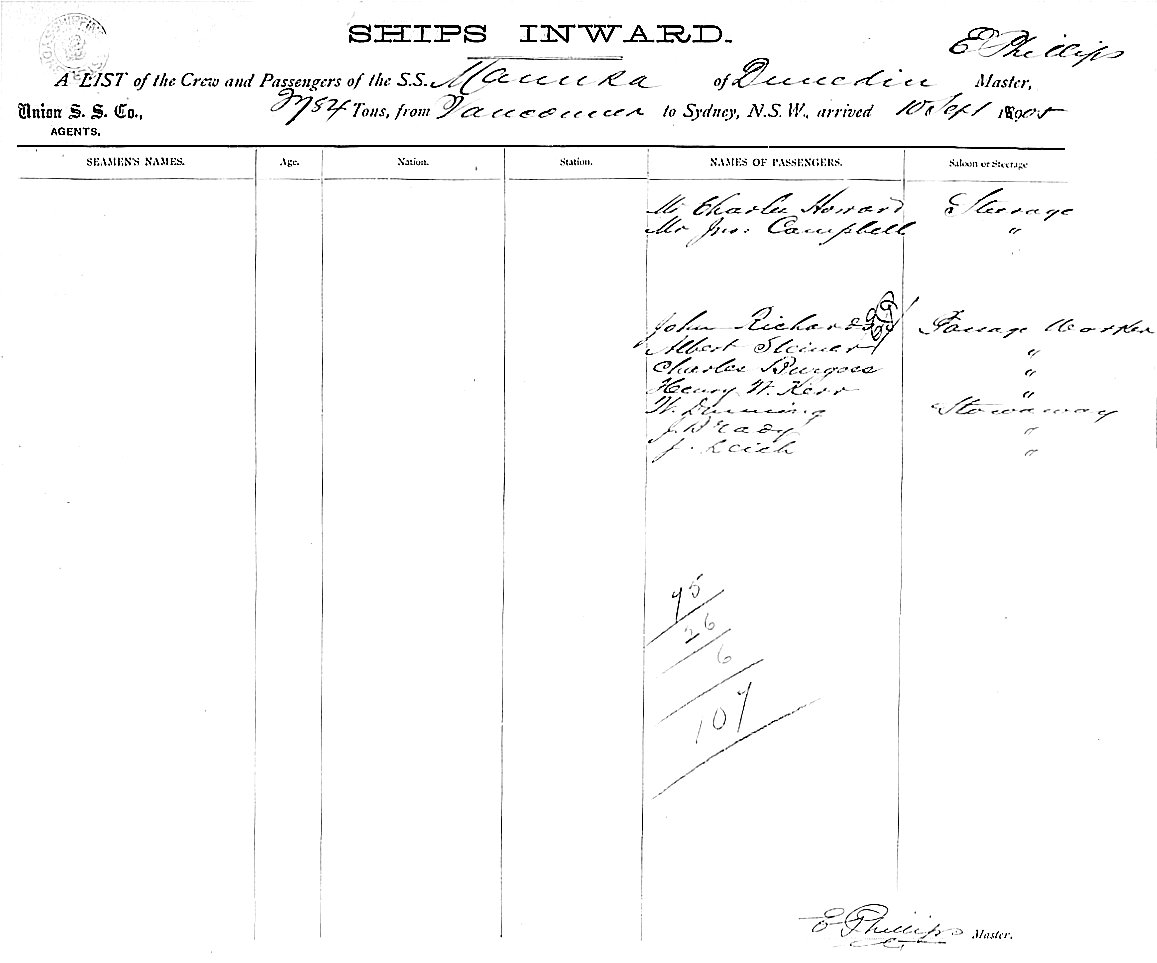 SHIPS INWARD.
E Phillips
A LIST of the Crew and Passengers of the S.S. Manuka of Dunedin Master,
Union S. S. Co., Tons, from Vancouver to Sydney, N.S.W., arrived 10 Sept 1905
AGENTS.
SEAMEN'S NAMES. Age. Nation. Station. NAMES OF PASSENGERS. Saloon or Steerage
Mr Charles Howard Steerage
Mr Jno: Campbell "
John Richards Passage Worker
Albert Steiner "
Charles Burgess "
Henry W. Kerr "
W. Dunning Stowaway
J. Brady "
J. Leich "
75
26
6
107
E Phillips Master.